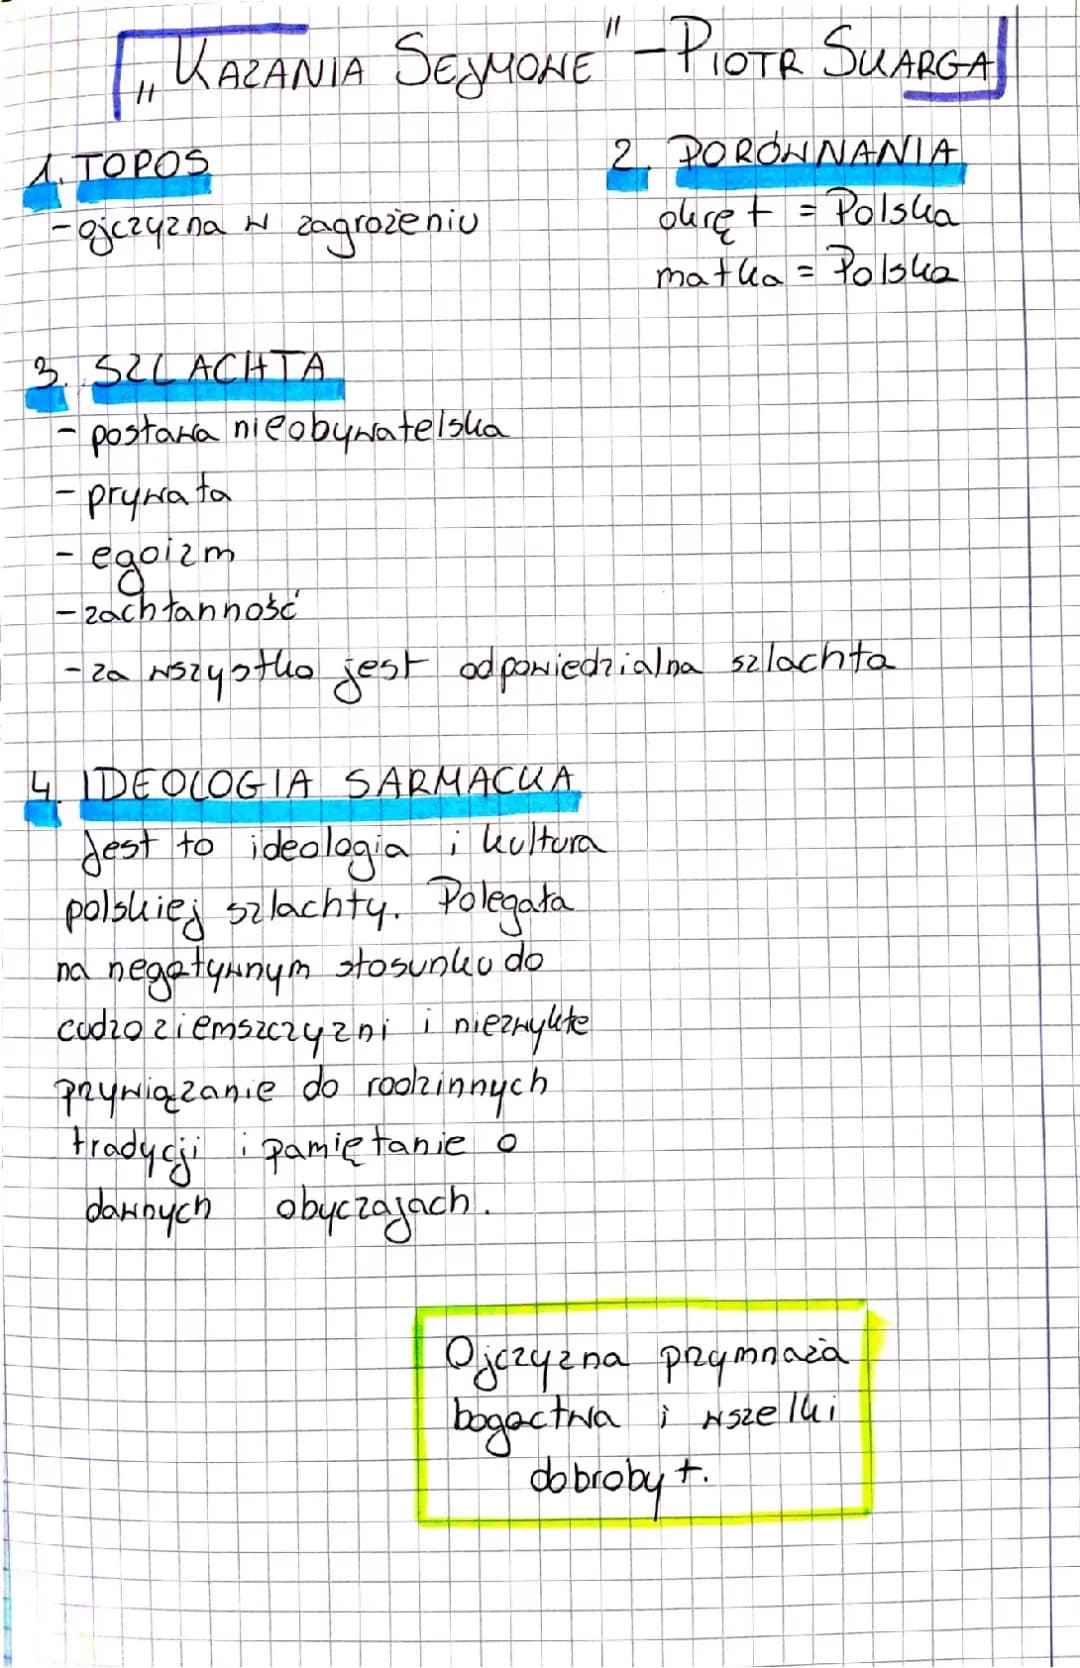 „KAZANIA SEJMOWE" - PIOTR SKARGA
1. TOPOS
- ojczyzna w zagrożeniu
2. PORÓWNANIA
okręt = Polska
matka = Polska
3. SZLACHTA
- postawa nieobywatelska
- prywata
- egoizm
- zachłanność
- za wszystko jest odpowiedzialna szlachta
4. IDEOLOGIA SARMACKA
Jest to ideologia i kultura
polskiej szlachty. Polegała
na negatywnym stosunku do
cudzoziemszczyzni i niezwykłe
przywiązanie do rodzinnych
tradycji i pamiętanie o
dawnych obyczajach.
Ojczyzna przymnaża
bogactwa i wszelki
dobrobyt.